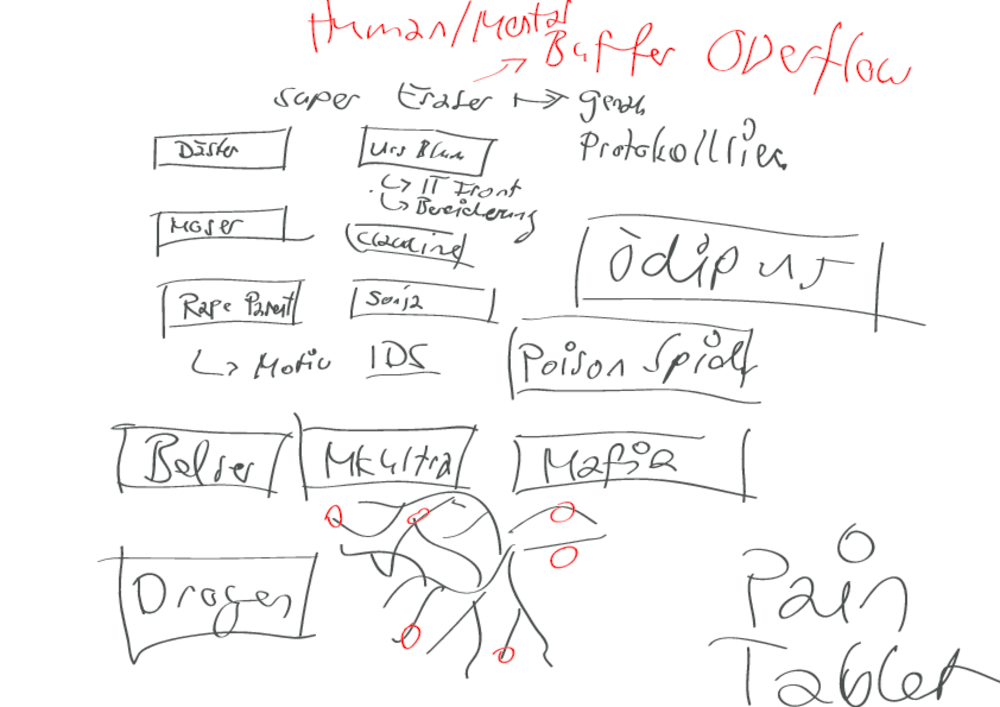 Human/Mental
Buffer Overflow
Super Eraser genau
Protokollier
Däster
Urs Blum
IT Front
Bereicherung
Moser
Claudine
Ödipus
Rape Parent
Sonja
Motiv IDS
Poison Spider
Belser
MKUltra
Mafia
Drogen
Pain
Tablet